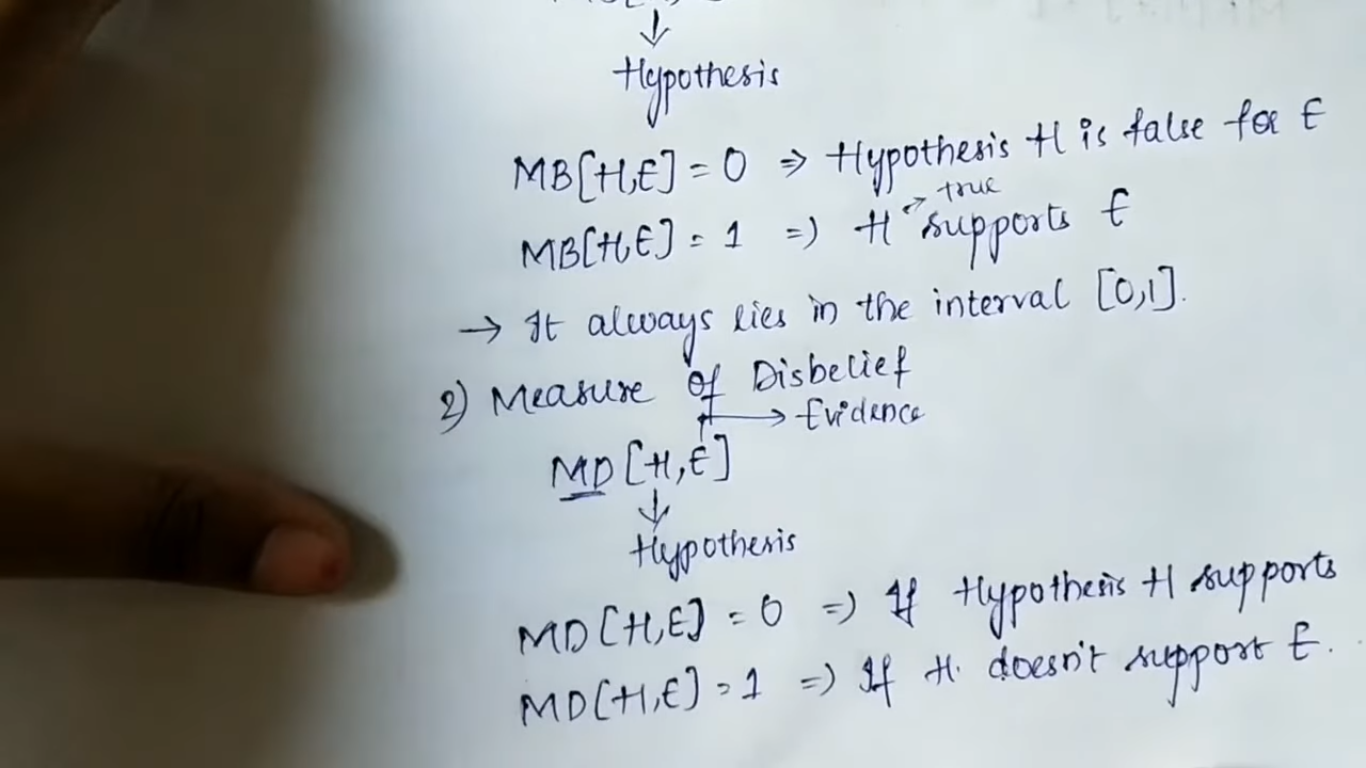 ↓
Hypothesis
MB[H,E] = 0 ⇒ Hypothesis H is false for E
→ true
MB[H,E] = 1 ⇒ H supports E
→ It always lies in the interval [0,1].
2) Measure of Disbelief
→ Evidence
MD[H,E]
↓
Hypothesis
MD[H,E] = 0 ⇒ If Hypothesis H supports
MD[H,E] = 1 ⇒ If H doesn't support E.